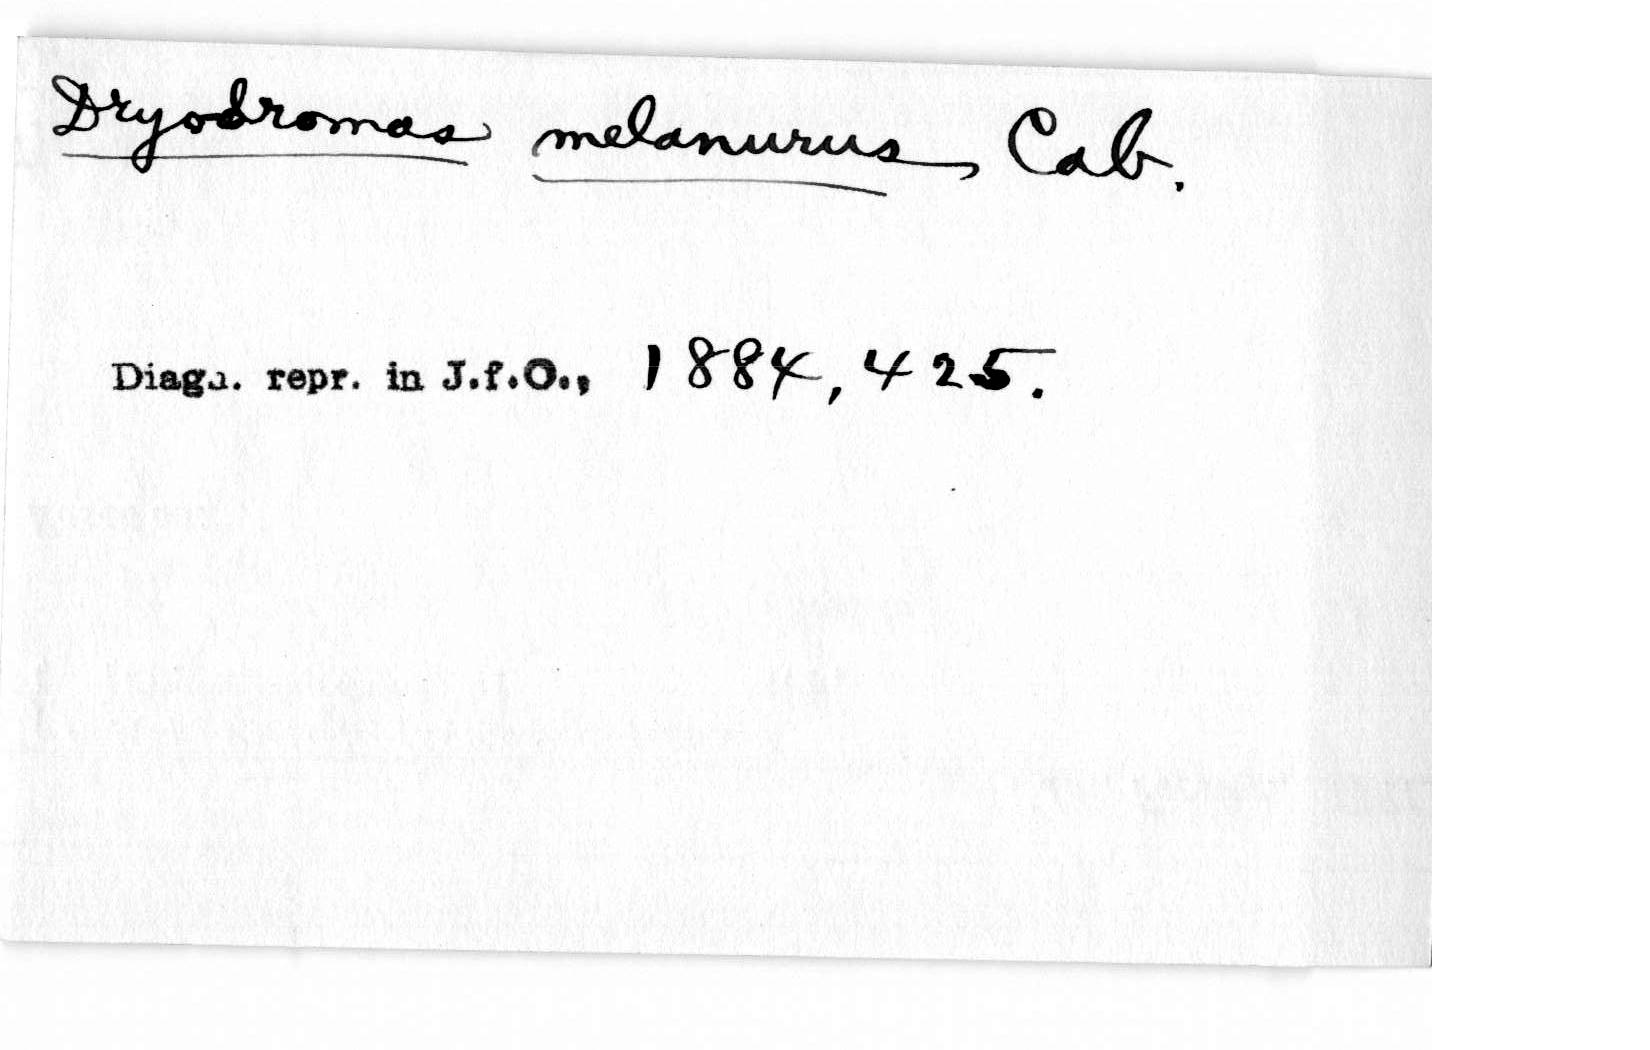 Dryodromas melanurus, Cab.
Diagn. repr. in J.f.O., 1884, 425.